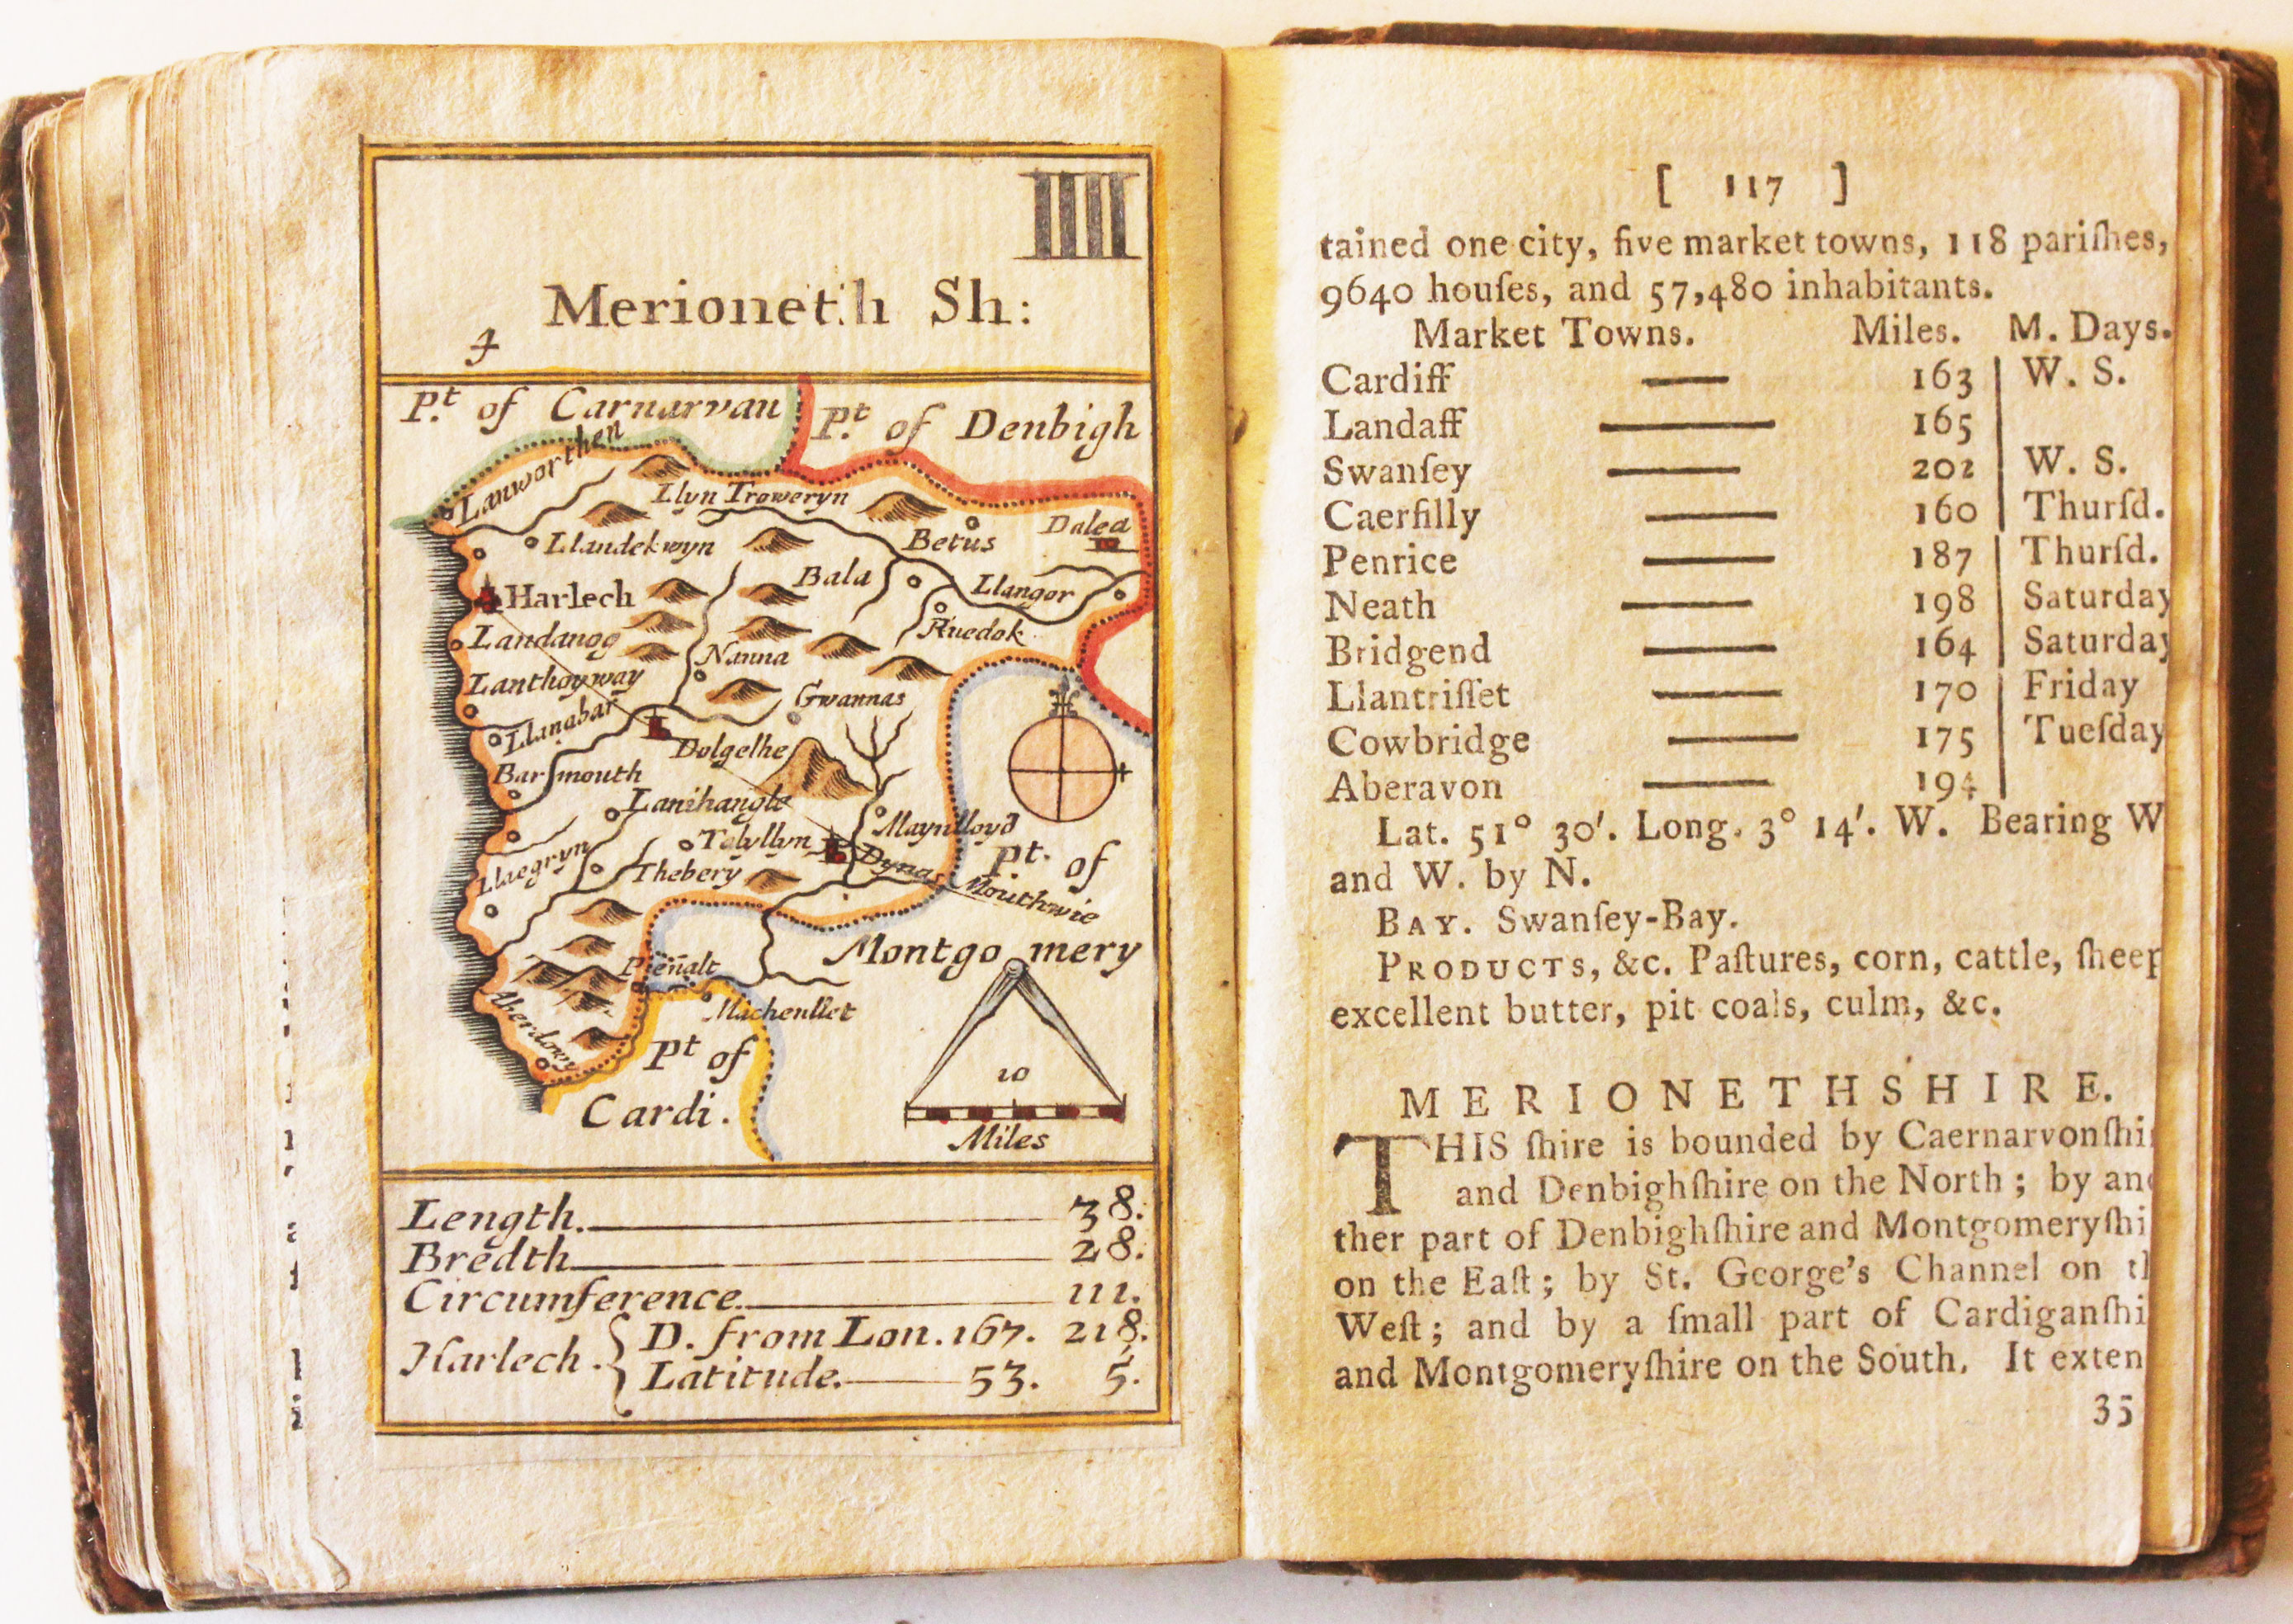 IIII
Merioneth Sh:
4
P.t of Carnarvan
P.t of Denbigh
Lanworthen
Llyn Troweryn
Llandekwyn
Betus
Dalea
Harlech
Bala
Llangor
Landanog
Ruedok
Nanna
Lanthoyway
Gwannas
Llanabar
Dolgelhe
Barmouth
Lanihangle
Maynlloyd
Talyllyn
Dynas
Mouthwie
pt. of
Llaegryn
Thebery
Montgomery
Penalt
Machenllet
Aberdowy
pt of
Cardi.
10
Miles
Length. 38.
Bredth 28.
Circumference. 111.
Harlech. { D. from Lon. 167. 218.
Latitude. 53. 5.
[ 117 ]
tained one city, five market towns, 118 pariſhes,
9640 houſes, and 57,480 inhabitants.
Market Towns. Miles. M. Days.
Cardiff — 163 | W. S.
Landaff — 165
Swanſey — 202 | W. S.
Caerfilly — 160 | Thurſd.
Penrice — 187 | Thurſd.
Neath — 198 | Saturday
Bridgend — 164 | Saturday
Llantriſſet — 170 | Friday
Cowbridge — 175 | Tueſday
Aberavon — 194 |
Lat. 51° 30′. Long. 3° 14′. W. Bearing W
and W. by N.
BAY. Swanſey-Bay.
PRODUCTS, &c. Paſtures, corn, cattle, ſheep
excellent butter, pit coals, culm, &c.
MERIONETHSHIRE.
THIS ſhire is bounded by Caernarvonſhi
and Denbighſhire on the North; by an
ther part of Denbighſhire and Montgomeryſhi
on the Eaſt; by St. George's Channel on t
Weſt; and by a ſmall part of Cardiganſhi
and Montgomeryſhire on the South. It exten
35